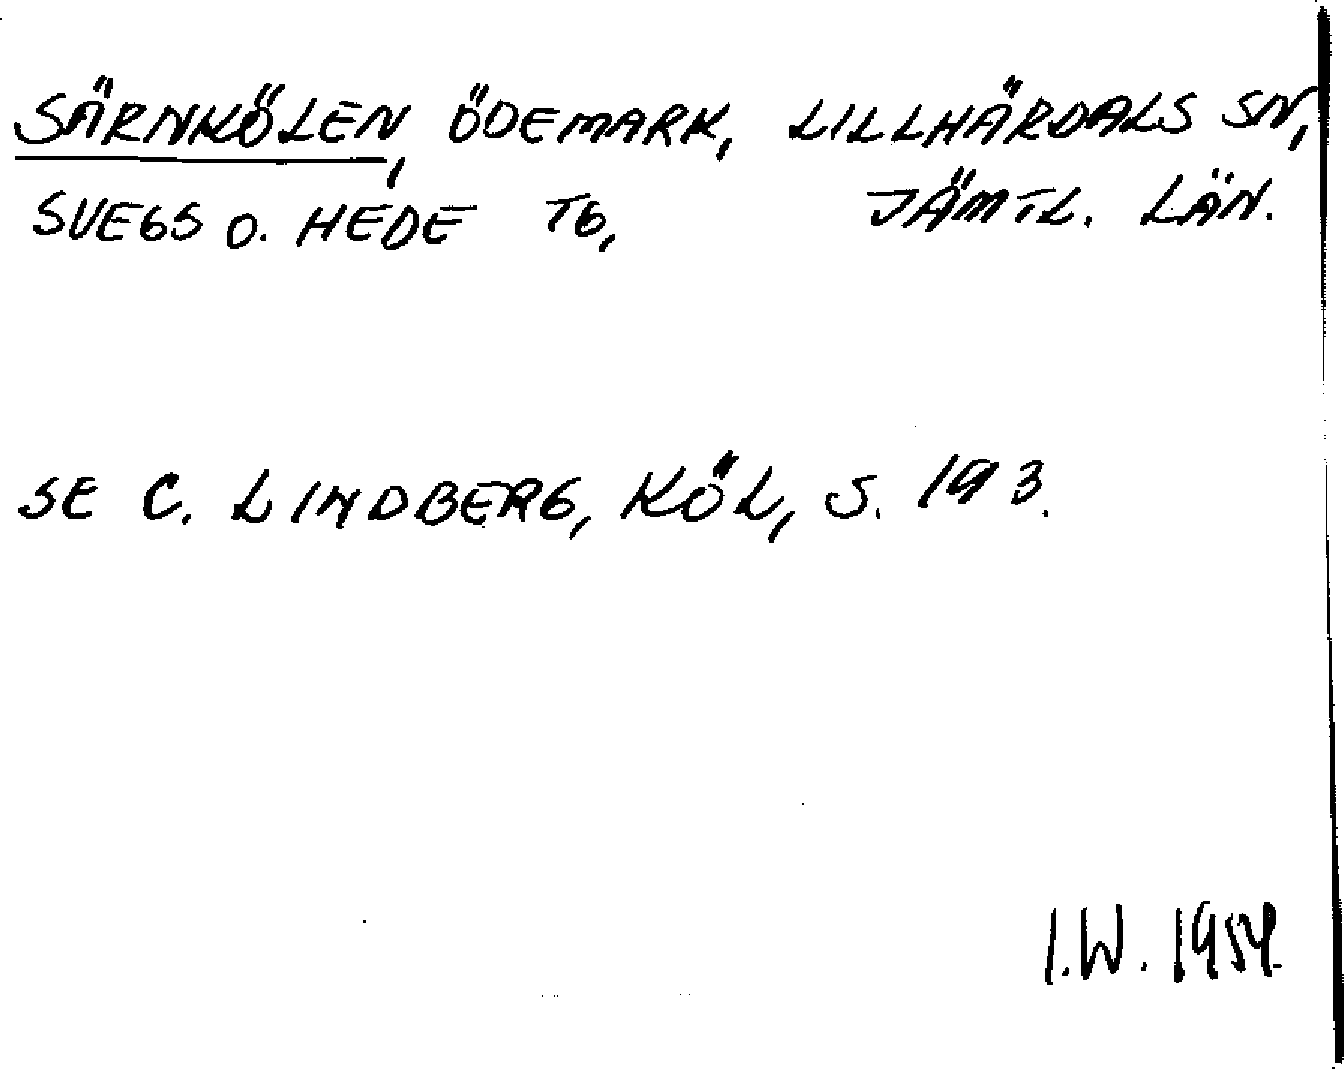 SÄRNKÖLEN, ÖDEMARK, LILLHÄRDALS SN,
SVEGS O. HEDE TG, JÄMTL. LÄN.
SE C. LINDBERG, KÖL, S. 193.
I.W. 1954.